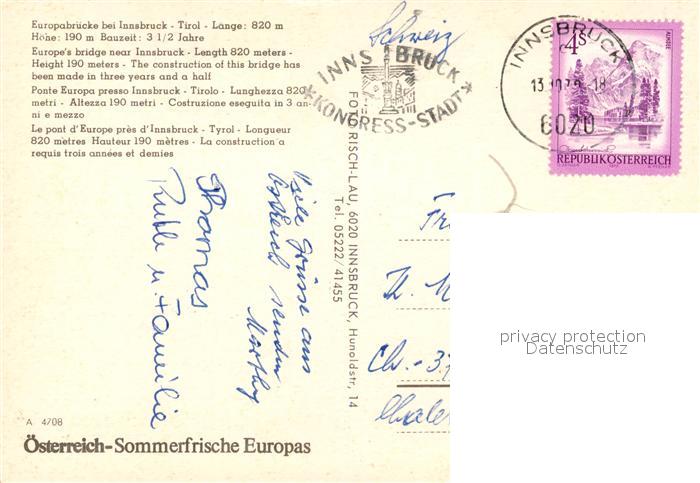 Europabrücke bei Innsbruck - Tirol - Länge: 820 m
Höhe: 190 m Bauzeit: 3 1/2 Jahre
Europe's bridge near Innsbruck - Length 820 meters -
Height 190 meters - The construction of this bridge has
been made in three years and a half
Ponte Europa presso Innsbruck - Tirolo - Lunghezza 820
metri - Altezza 190 metri - Costruzione eseguita in 3 an-
ni e mezzo
Le pont d'Europe près d'Innsbruck - Tyrol - Longueur
820 mètres Hauteur 190 mètres - La construction a
requis trois années et demies
Schweiz
INNSBRUCK
*KONGRESS-STADT*
INNSBRUCK
18
6020
4S
ALMSEE
REPUBLIK ÖSTERREICH
RISCH-LAU, 6020 INNSBRUCK, Hunoldstr. 14
Tel. 05222/41455
Viele Grüsse aus
Östreich senden
Thomas
u. Familie
Fr
Ch. - 3
privacy protection
Datenschutz
A 4708
Österreich-Sommerfrische Europas